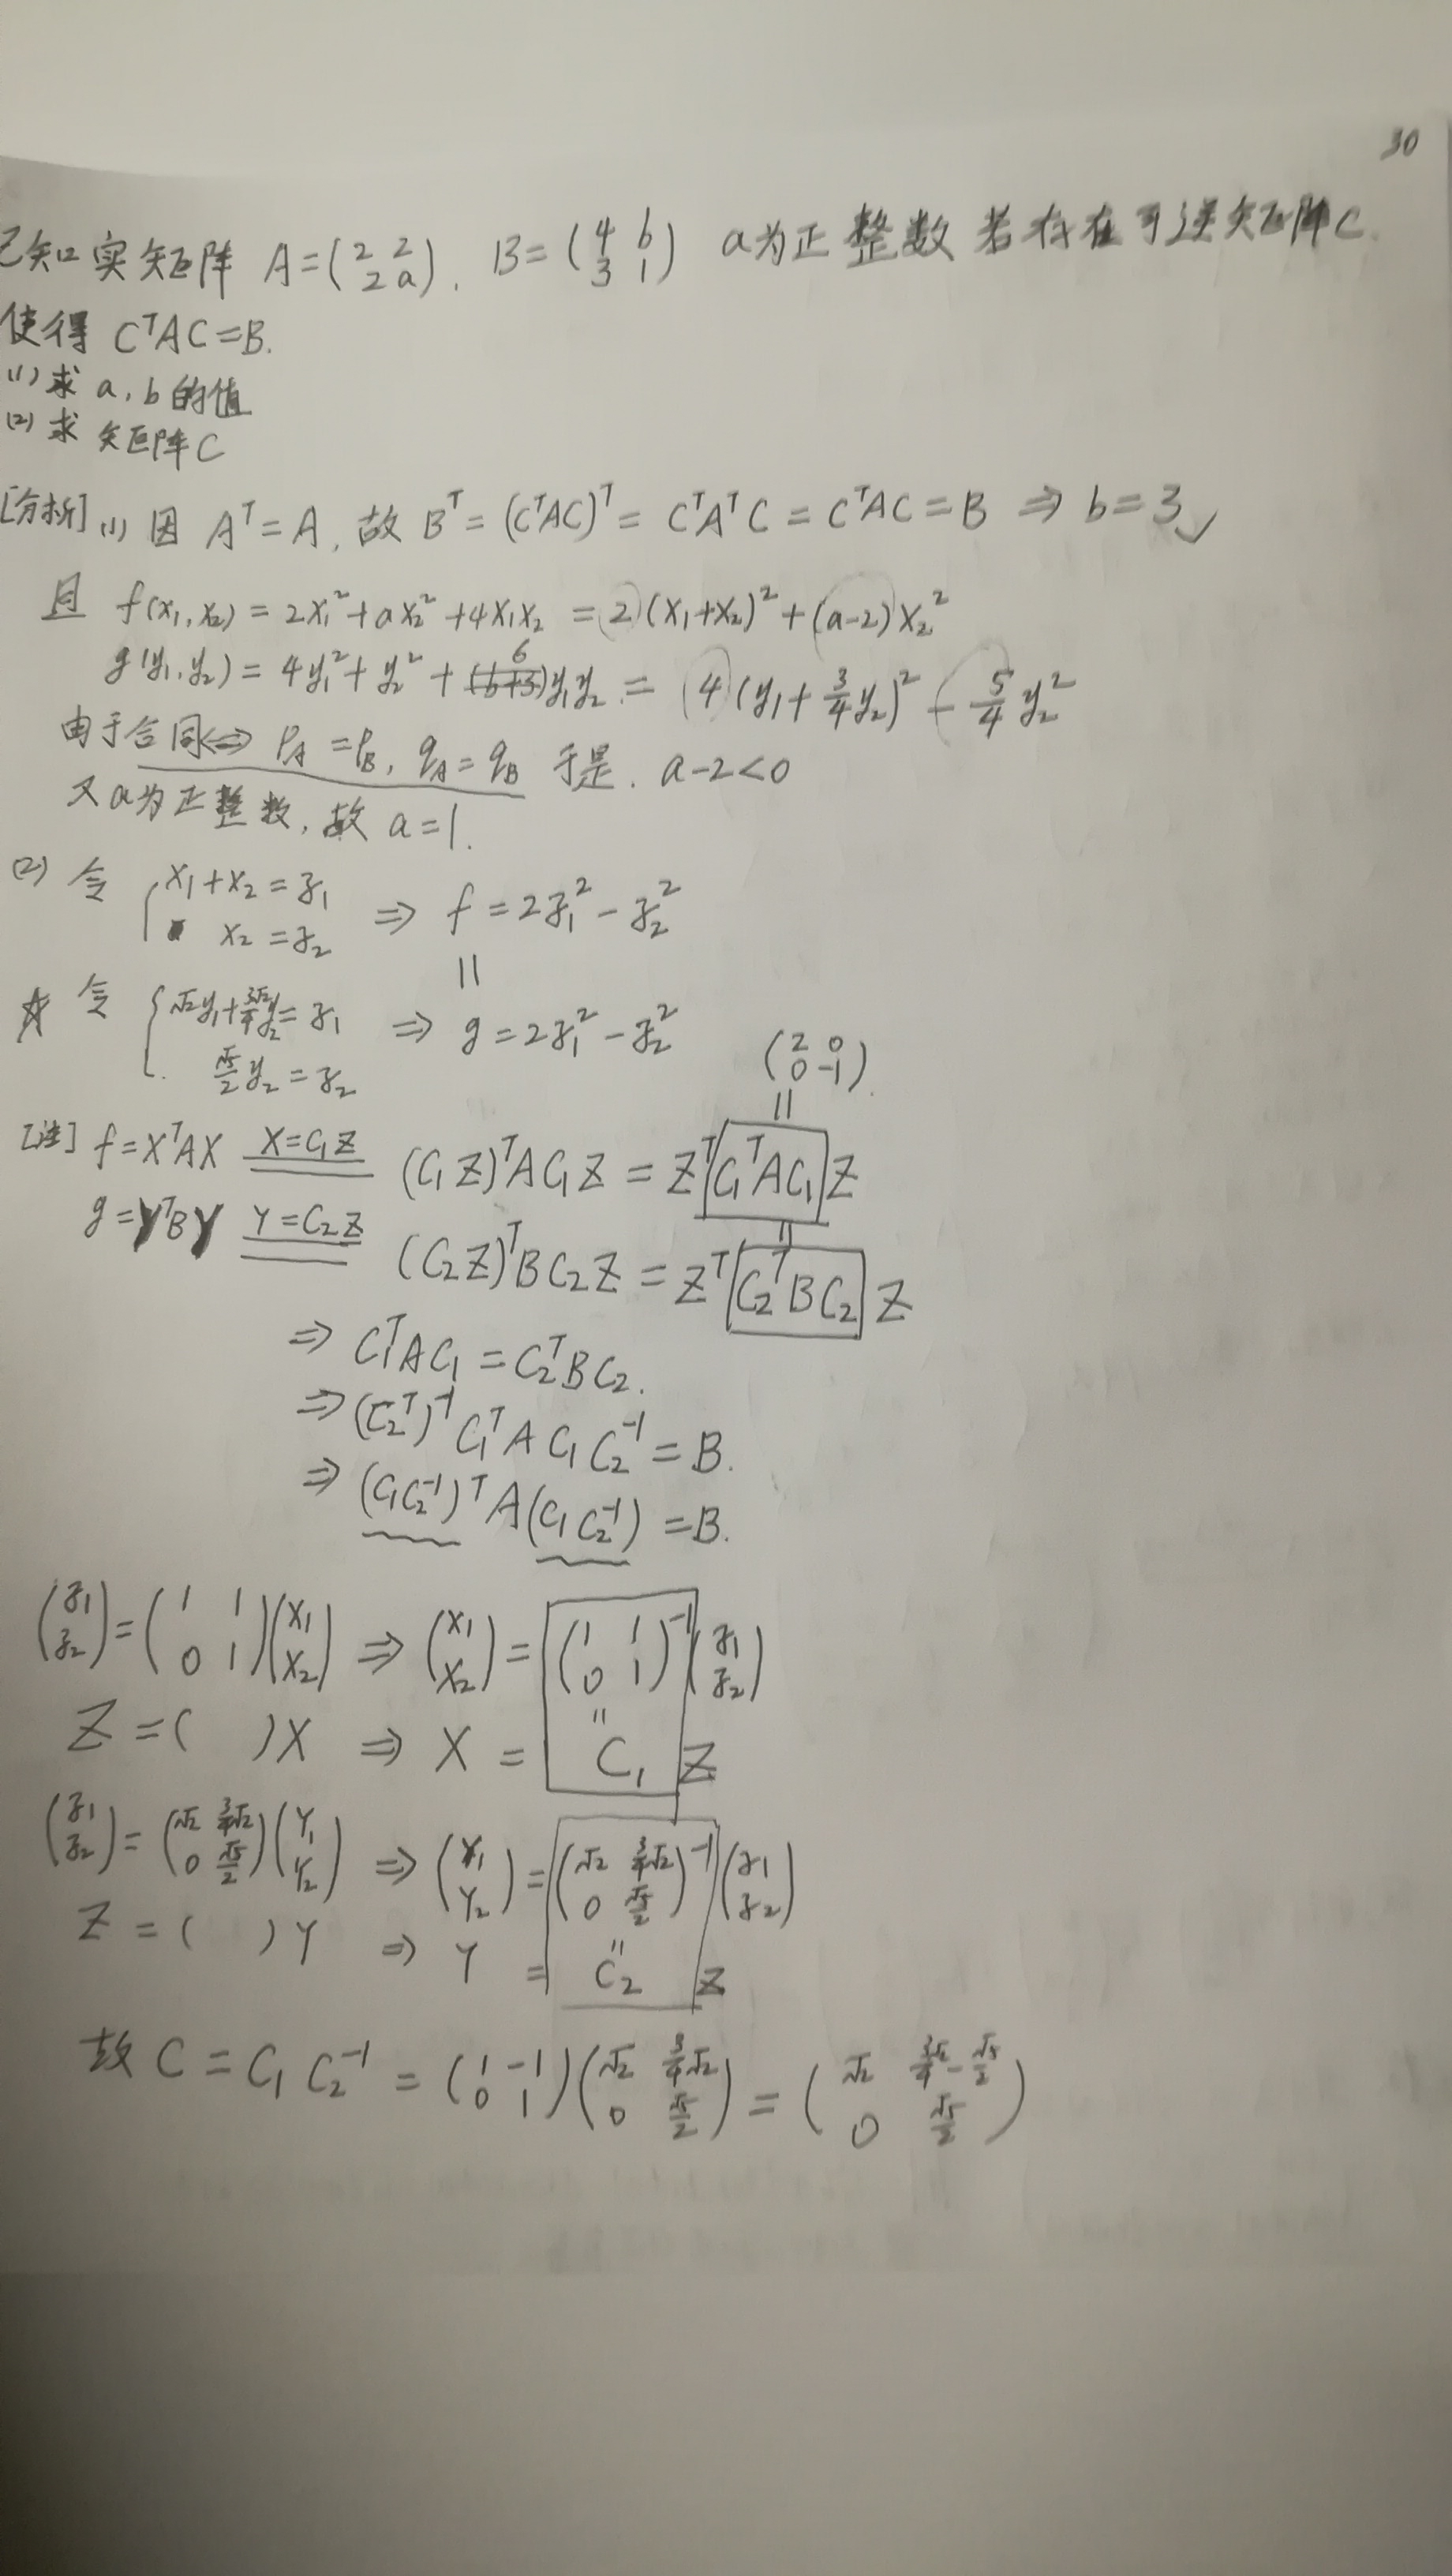 30
已知实矩阵 A=(2 2; 2 a). B=(4 b; 3 1) a为正整数 若存在可逆矩阵C.
使得 CᵀAC=B.
(1) 求 a, b 的值
(2) 求 矩阵C
[分析] (1) 因 Aᵀ=A, 故 Bᵀ=(CᵀAC)ᵀ=CᵀAᵀC=CᵀAC=B ⇒ b=3 ✓
且 f(x₁,x₂)=2x₁²+ax₂²+4x₁x₂=2(x₁+x₂)²+(a-2)x₂²
g(y₁,y₂)=4y₁²+y₂²+6y₁y₂=4(y₁+3/4 y₂)²-5/4 y₂²
由于合同⇔ p_A=p_B, q_A=q_B 于是. a-2<0
又a为正整数, 故 a=1.
(2) 令 { x₁+x₂=z₁ ; x₂=z₂ ⇒ f=2z₁²-z₂²
||
☆ 令 { √2y₁+3√2/4 y₂=z₁ ; √5/2 y₂=z₂ ⇒ g=2z₁²-z₂²
(2 0; 0 -1).
||
[注] f=XᵀAX X=C₁Z (C₁Z)ᵀAC₁Z=ZᵀC₁ᵀAC₁Z
||
g=YᵀBY Y=C₂Z (C₂Z)ᵀBC₂Z=ZᵀC₂ᵀBC₂Z
⇒ C₁ᵀAC₁=C₂ᵀBC₂.
⇒ (C₂ᵀ)⁻¹C₁ᵀAC₁C₂⁻¹=B.
⇒ (C₁C₂⁻¹)ᵀA(C₁C₂⁻¹)=B.
(z₁; z₂)=(1 1; 0 1)(x₁; x₂) ⇒ (x₁; x₂)=(1 1; 0 1)⁻¹(z₁; z₂)
"
Z=( )X ⇒ X=C₁Z
(z₁; z₂)=(√2 3/4√2; 0 √5/2)(Y₁; Y₂) ⇒ (Y₁; Y₂)=(√2 3/4√2; 0 √5/2)⁻¹(z₁; z₂)
"
Z=( )Y ⇒ Y=C₂Z
故 C=C₁C₂⁻¹=(1 -1; 0 1)(√2 3/4√2; 0 √5/2)=(√2 3√2/4-√5/2; 0 √5/2)